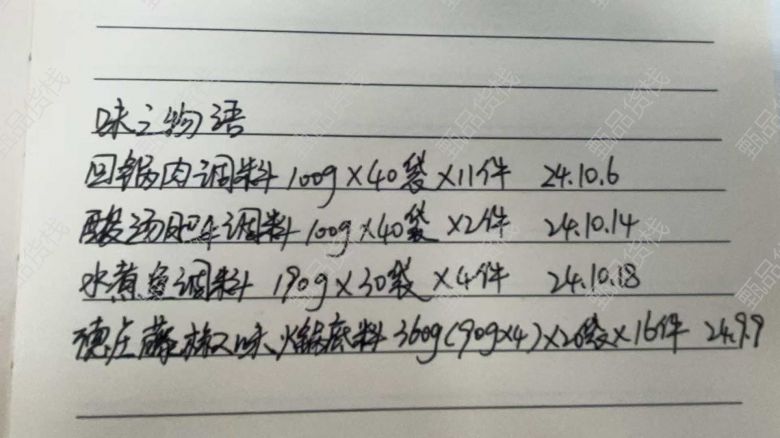 味之物语
回锅肉调料 100g×40袋×11件 24.10.6
酸汤肥牛调料 100g×40袋×2件 24.10.14
水煮鱼调料 190g×30袋×4件 24.10.18
德庄藤椒味火锅底料 360g(90g×4)×20袋×16件 24.9.9
甄品货栈